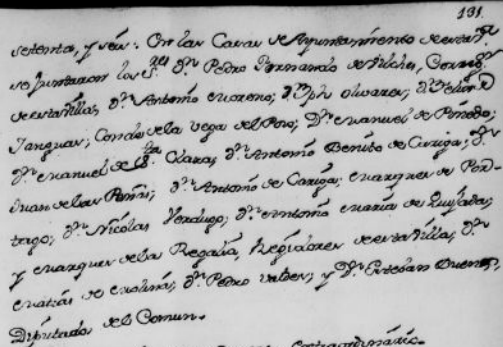 131.
setenta, y seis: En las Casas de Ayuntamiento de esta V.ª
se juntaron los S.res D.n Pedro Fernando de Vilches, Corrig.or
de esta Villa, D.n Antonio Moreno; D.n Jph Olivares; D.n Felix D
Yanguas; Conde de la Vega del Pozo; D.n Manuel de Pinedo;
D.n Manuel de S.ta Clara; D.n Antonio Benito de Cariga; D.n
Juan de las Peñas; D.n Antonio de Cariga; Marques de Por-
tago; D.n Nicolas Verdugo; D.n Antonio Maria de Quijada;
y Marques de la Regalia, Regidores de esta Villa; D.n
Matias de Molina; D.n Pedro Valdes; y D.n Esteban Bueno,
Diputados del Comun.
Extraordinario